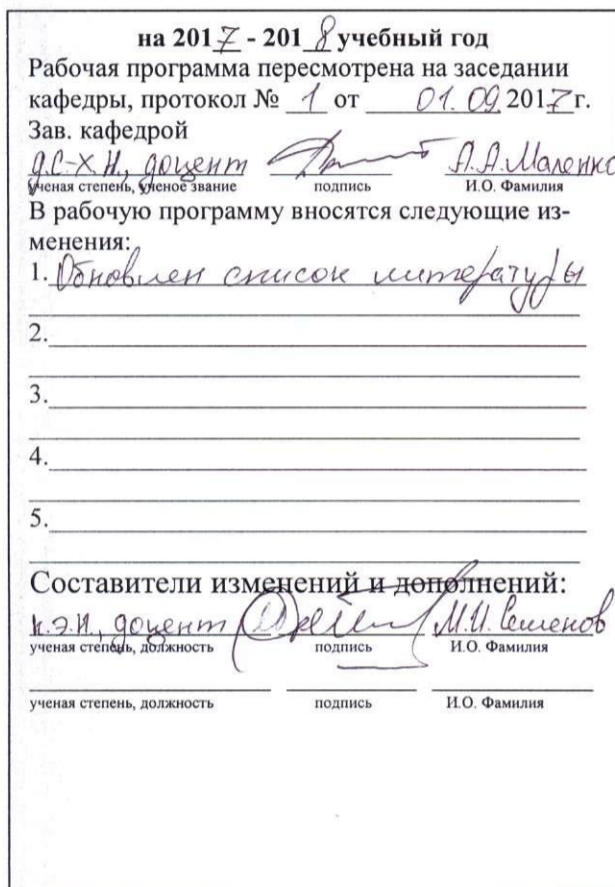 на 2017 - 2018 учебный год
Рабочая программа пересмотрена на заседании
кафедры, протокол № 1 от 01.09.2017г.
Зав. кафедрой
д.с-х.н., доцент А.А.Маленко
ученая степень, ученое звание подпись И.О. Фамилия
В рабочую программу вносятся следующие из-
менения:
1. Обновлен список литературы
2.
3.
4.
5.
Составители изменений и дополнений:
к.э.н., доцент М.И.
ученая степень, должность подпись И.О. Фамилия
ученая степень, должность подпись И.О. Фамилия